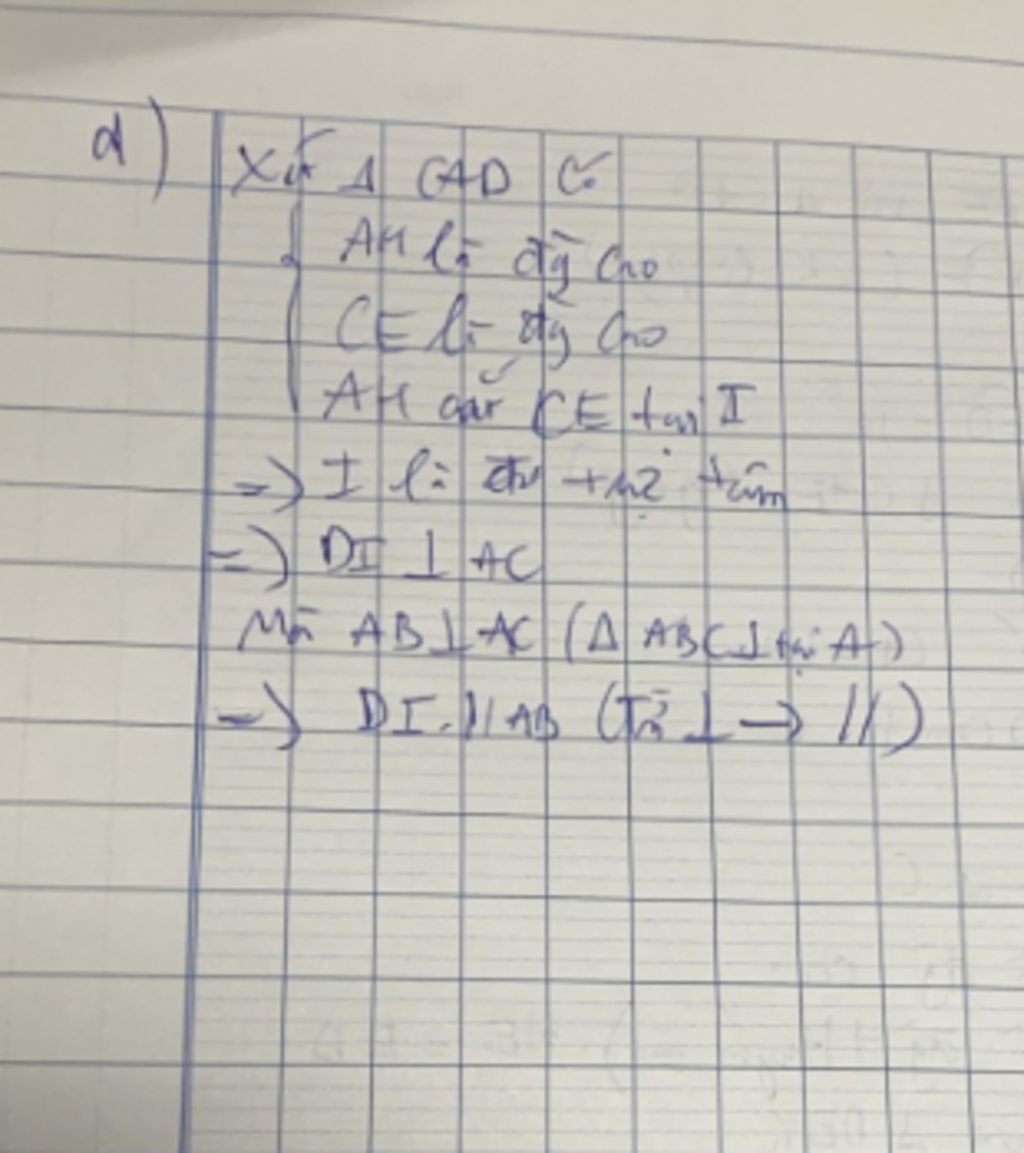 d) Xét Δ CAD có
AH là đg cao
CE là đg cao
AH cắt CE tại I
=) I là trực tâm
=) DI ⊥ AC
Mà AB ⊥ AC (Δ ABC ⊥ tại A)
=) DI // AB (Từ ⊥ → //)